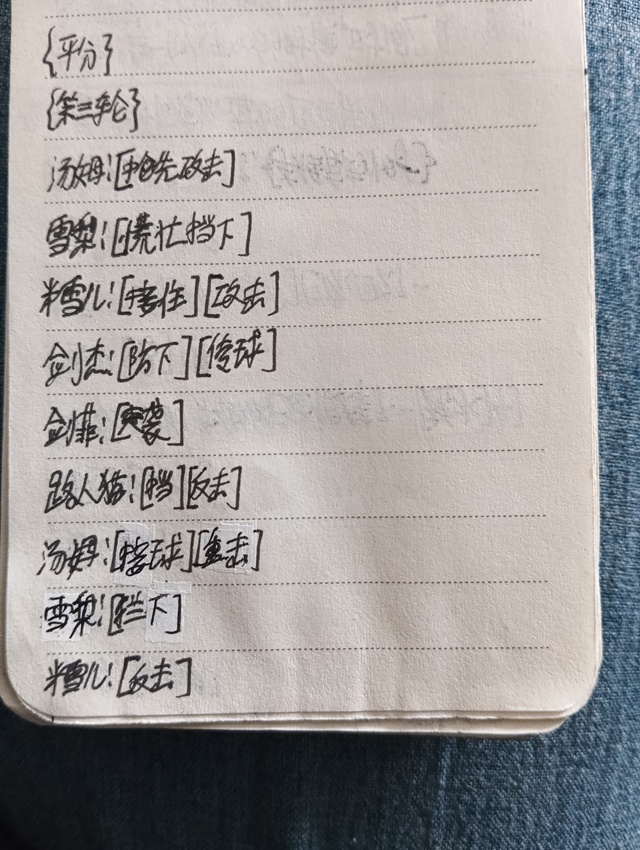 {平分}
{第三轮}
汤姆:[抢先攻击]
雪梨:[慌忙挡下]
米雪儿:[接住][攻击]
剑杰:[防下][传球]
剑菲:[突袭]
路人猫:[挡][反击]
汤姆:[接球][重击]
雪梨:[拦下]
米雪儿:[反击]